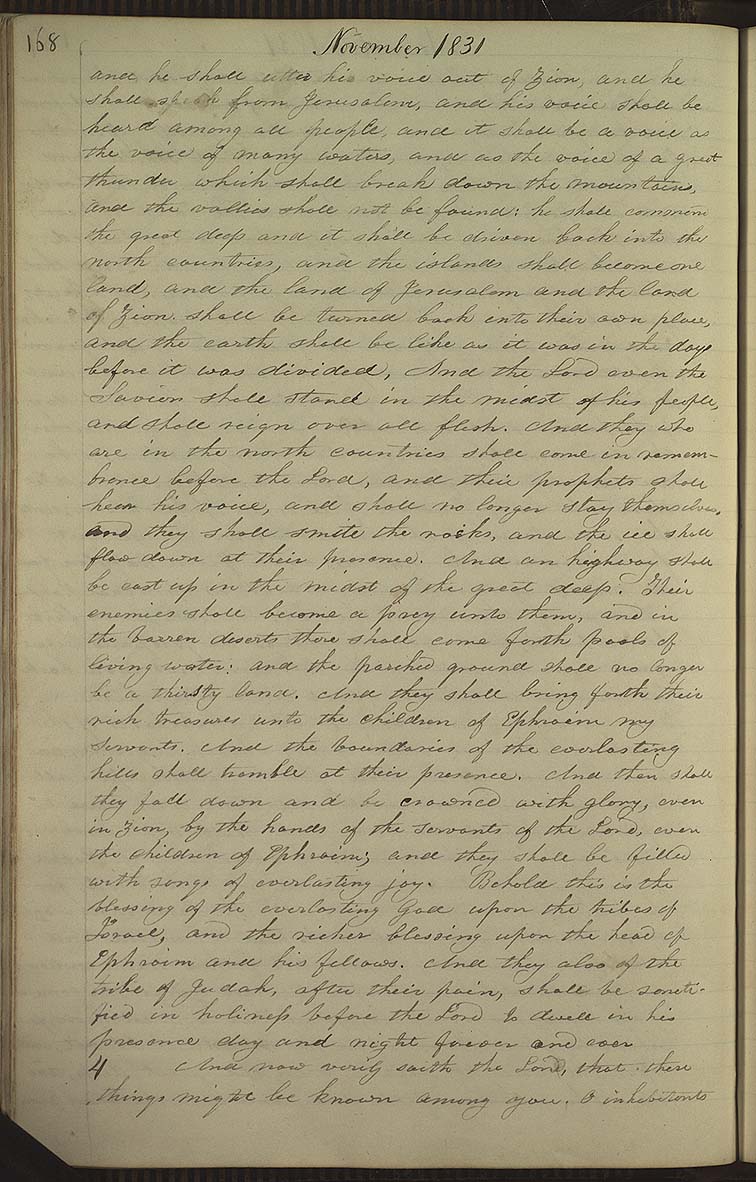 168
November 1831
and he shall utter his voice out of Zion, and he
shall speak from Jerusalem, and his voice shall be
heard among all people, and it shall be a voice as
the voice of many waters, and as the voice of a great
thunder which shall break down the mountains,
and the vallies shall not be found: he shall comman
the great deep and it shall be driven back into the
north countries, and the islands shall become one
land, and the land of Jerusalem and the land
of Zion shall be turned back into their own place,
and the earth shall be like as it was in the days
before it was divided, And the Lord even the
Savior shall stand in the midst of his people,
and shall reign over all flesh. And they who
are in the north countries shall come in remem-
brance before the Lord, and their prophets shall
hear his voice, and shall no longer stay themselves,
and they shall smite the rocks, and the ice shall
flow down at their presence. And an highway shall
be cast up in the midst of the great deep. Their
enemies shall become a prey unto them, and in
the barren deserts there shall come forth pools of
living water: and the parched ground shall no longer
be a thirsty land. And they shall bring forth their
rich treasures unto the children of Ephraim my
servants. And the boundaries of the everlasting
hills shall tremble at their presence. And then shall
they fall down and be crowned with glory, even
in Zion, by the hands of the servants of the Lord, even
the children of Ephraim; and they shall be filled
with songs of everlasting joy. Behold this is the
blessing of the everlasting God upon the tribes of
Israel, and the richer blessing upon the head of
Ephraim and his fellows. And they also of the
tribe of Judah, after their pain, shall be sancti-
fied in holiness before the Lord to dwell in his
presence day and night forever and ever
4 And now verily saith the Lord, that these
things might be known among you. O inhabitants